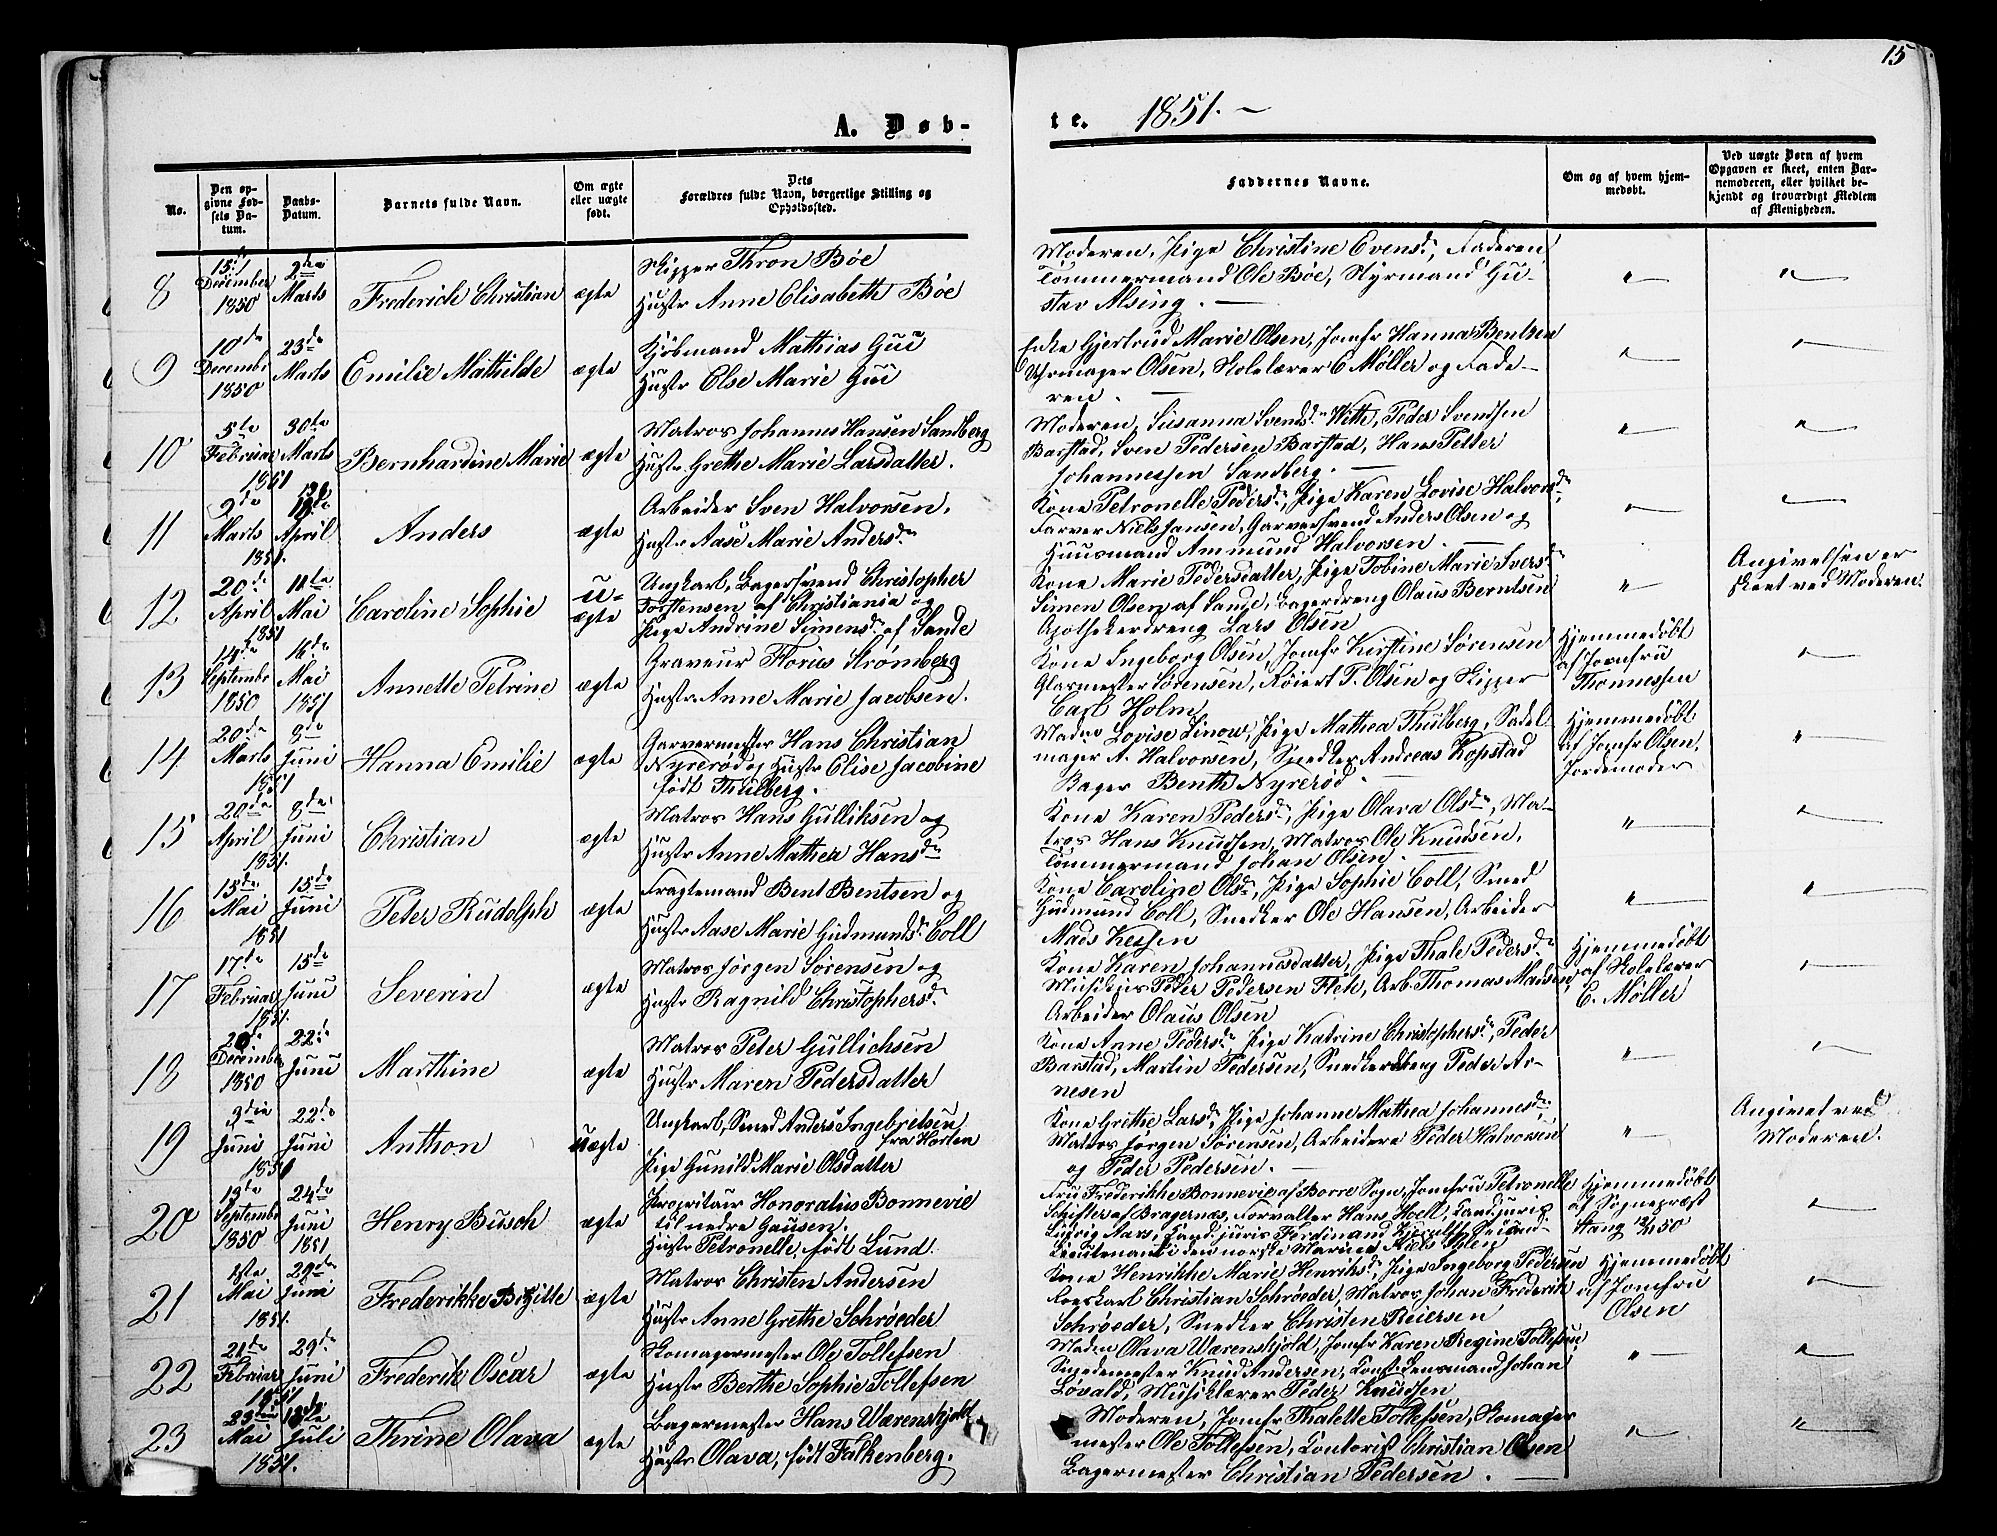 15
A. Døb-
te. 1851. –
No.
Den op-
givne Fød-
sels Da-
tum.
Daabs-
Datum.
Barnets fulde Navn.
Om ægte
eller uægte
født.
Dets
Forældres fulde Navn, borgerlige Stilling og
Opholdssted.
Faddernes Navne.
Om og af hvem hjem-
medøbt.
Ved uægte Børn af hvem
Opgaven er skeet, enten Bar-
nemoderen, eller hvilket be-
kjendt og troværdigt Medlem
af Menigheden.
8
15de
December
1850
2den
Marts
Frederich Christian
ægte
Skipper Thron Bøe
Hustr Anne Elisabeth Bøe
Moderen, Pige Christine Evensd., Faderen,
Tømmermand Ole Bøe, Styrmand Gu-
stav Alsing. —
"
"
9
10de
Decembr
1850
23de
Marts
Emilie Mathilde
ægte
Kjøbmand Mathias Gui
Hustr Else Marie Gui
Enke Gjertrud Marie Olsen, Jomfr Hanna Bentzen
Uhrmager Olsen, Skolelærer C Møller og Fade-
ren. —
"
"
10
5te
Februar
1851
30te
Marts
Bernhardine Marie
ægte
Matros Johannes Hansen Sandberg
Hustr Grethe Marie Larsdatter.
Moderen, Susanna Svendsdr Weth, Peder Svendsen
Barstad, Sven Pedersen Barstad, Hans Petter
Johannessen Sandberg. —
"
"
11
9de
Marts
1851.
13de
April
Anders
ægte
Arbeider Sven Halvorsen,
Hustr Aase Marie Andersdr
Kone Petronelle Pedersdr, Pige Karen Lovise Halvorsdr,
Farver Niels Jansen, Garversvend Anders Olsen og
Huusmand Ammund Halvorsen. —
"
"
12
20de
April
1851
11te
Mai
Caroline Sophie
u-
ægte
Ungkarl, Bagersvend Christopher
Torstensen af Christiania og
Pige Andrine Simensdr af Sande
Kone Marie Pedersdatter, Pige Tobine Marie Iversdr
Simen Olsen af Sande, Bagerdreng Olaus Berntsen
Apothekerdreng Lars Olsen
"
Angivelsen er
skeet ved Moderen.
13
14de
Septembr
1850
16de
Mai
1851
Annette Petrine
ægte
Graveur Florius Strømberg
Hustr Anne Marie Jacobsen.
Kone Ingeborg Olsen, Jomfr Kirstine Sørensen
Glarmester Sørensen, Røiert P. Olsen og Skipper
Carl Holm
Hjemmedøbt
af Jomfru
Thonnessen
"
14
20de
Marts
1851
9de
Juni
Hanna Emilie
ægte
Garvermester Hans Christian
Nyrerød og Hustr Elise Jacobine
født Thulberg.
Madm Lovise Linow, Pige Mathea Thulberg, Sadel-
mager A. Halvorsen, Snedker Andreas Kopstad
Bager Benth Nyrerød. —
Hjemmedøbt
af Jomfr Olsen,
Jordemoder
"
15
20de
April
1851.
8de
Juni
Christian
ægte
Matros Hans Gulliksen og
Hustr Anne Mathea Hansdr
Kone Karen Pedersdr, Pige Olava Olsdr, Ma-
tros Hans Knudsen, Matros Ole Knudsen,
Tømmermand Johan Olsen. —
"
"
16
15de
Mai
1851
15de
Juni
Peter Rudolph
ægte
Fragtemand Bent Bentsen og
Hustr Aase Marie Gudmundsdr Coll
Kone Caroline Olsdr, Pige Sophie Coll, Smed
Gudmund Coll, Snedker Ole Hansen, Arbeider
Mads Kessen
"
"
17
17de
Februar
1851.
15de
Juni
Severin
ægte
Matros Jørgen Sørensen og
Hustr Ragnild Christophersdr
Kone Karen Johannesdatter, Pige Thale Pedersdr
Musikus Peder Pedersen Fleh, Arb. Thomas Madsen,
Arbeider Olaus Olsen
Hjemmedøbt
af Skolelærer
C. Møller
"
18
20de
Decembr
1850
22de
Juni
Marthine
ægte
Matros Peter Gullichsen
Hustr Maren Pedersdatter
Kone Anne Pedersdr, Pige Katrine Christophersdr, Peder
Barstad, Martin Pedersen, Snedkerdreng Peder Ar-
nesen
"
"
19
3die
Juni
1851
22de
Juni
Anthon
uægte
Ungkarl, Smed Anders Ingebretsen
fra Horten
Pige Gunild Marie Olsdatter
Kone Grethe Larsdr, Pige Johanne Mathea Johannesdr,
Matros Jørgen Sørensen, Arbeidere Peder Halvorsen
og Peder Pedersen. —
"
Angivet ved
Moderen.
20
13de
Septembr
1850
24de
Juni
1851
Henry Busch
ægte
Propritair Honoratus Bonnevie
til nedre Gausen.
Hustr Petronelle, født Lund.
Fru Frederikke Bonnevie af Borre Sogn, Jomfru Petronelle
Schifter af Bragernæs, Forvalter Hans Hoell, Cand juris
Ludvig Aars, Cand. juris Ferdinand
Lieutenant i den norske Marine Niels Ihlen
Hjemmedøbt
af Sognepræst
Stang 12/11 50
"
21
1ste
Mai
1851.
29de
Juni
Frederikke Birgitte
ægte
Matros Christen Andersen
Hustr Anne Grethe Schrøeder
Kone Henrikke Marie Henriksdr, Pige Ingeborg Pedersen
Roeskarl Christian Schrøeder, Matros Johan Frederik
Schrøeder, Snedker Christen Reiersen
Hjemmedøbt
af Jomfru
Olsen
"
22
21de
Februar
1851
29de
Juni
Frederik Oscar
ægte
Skomagermester Ole Tollefsen
Hustr Berthe Sophie Tollefsen
Madm Olava Warenskjold, Jomfr Karen Regine Tollefsen,
Smedemester Knud Andersen, Const. Lensmand Johan
Løvald, Musiklærer Peder Knudsen
"
"
23
Mai
1851.
Juli
Thrine Olava
ægte
Bagermester Hans Warenskjold
Hustr Olava, født Falkenberg.
Moderen, Jomfr Thalette Tollefsen, Skomager
mester Ole Tollefsen, Contorist Christian Olsen
Bagermester Christian Pedersen. —
"
"